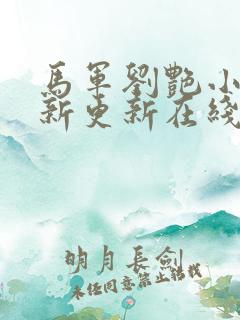 馬軍劉艷小
新更新在綫
明月長劍
未經同意禁止轉載